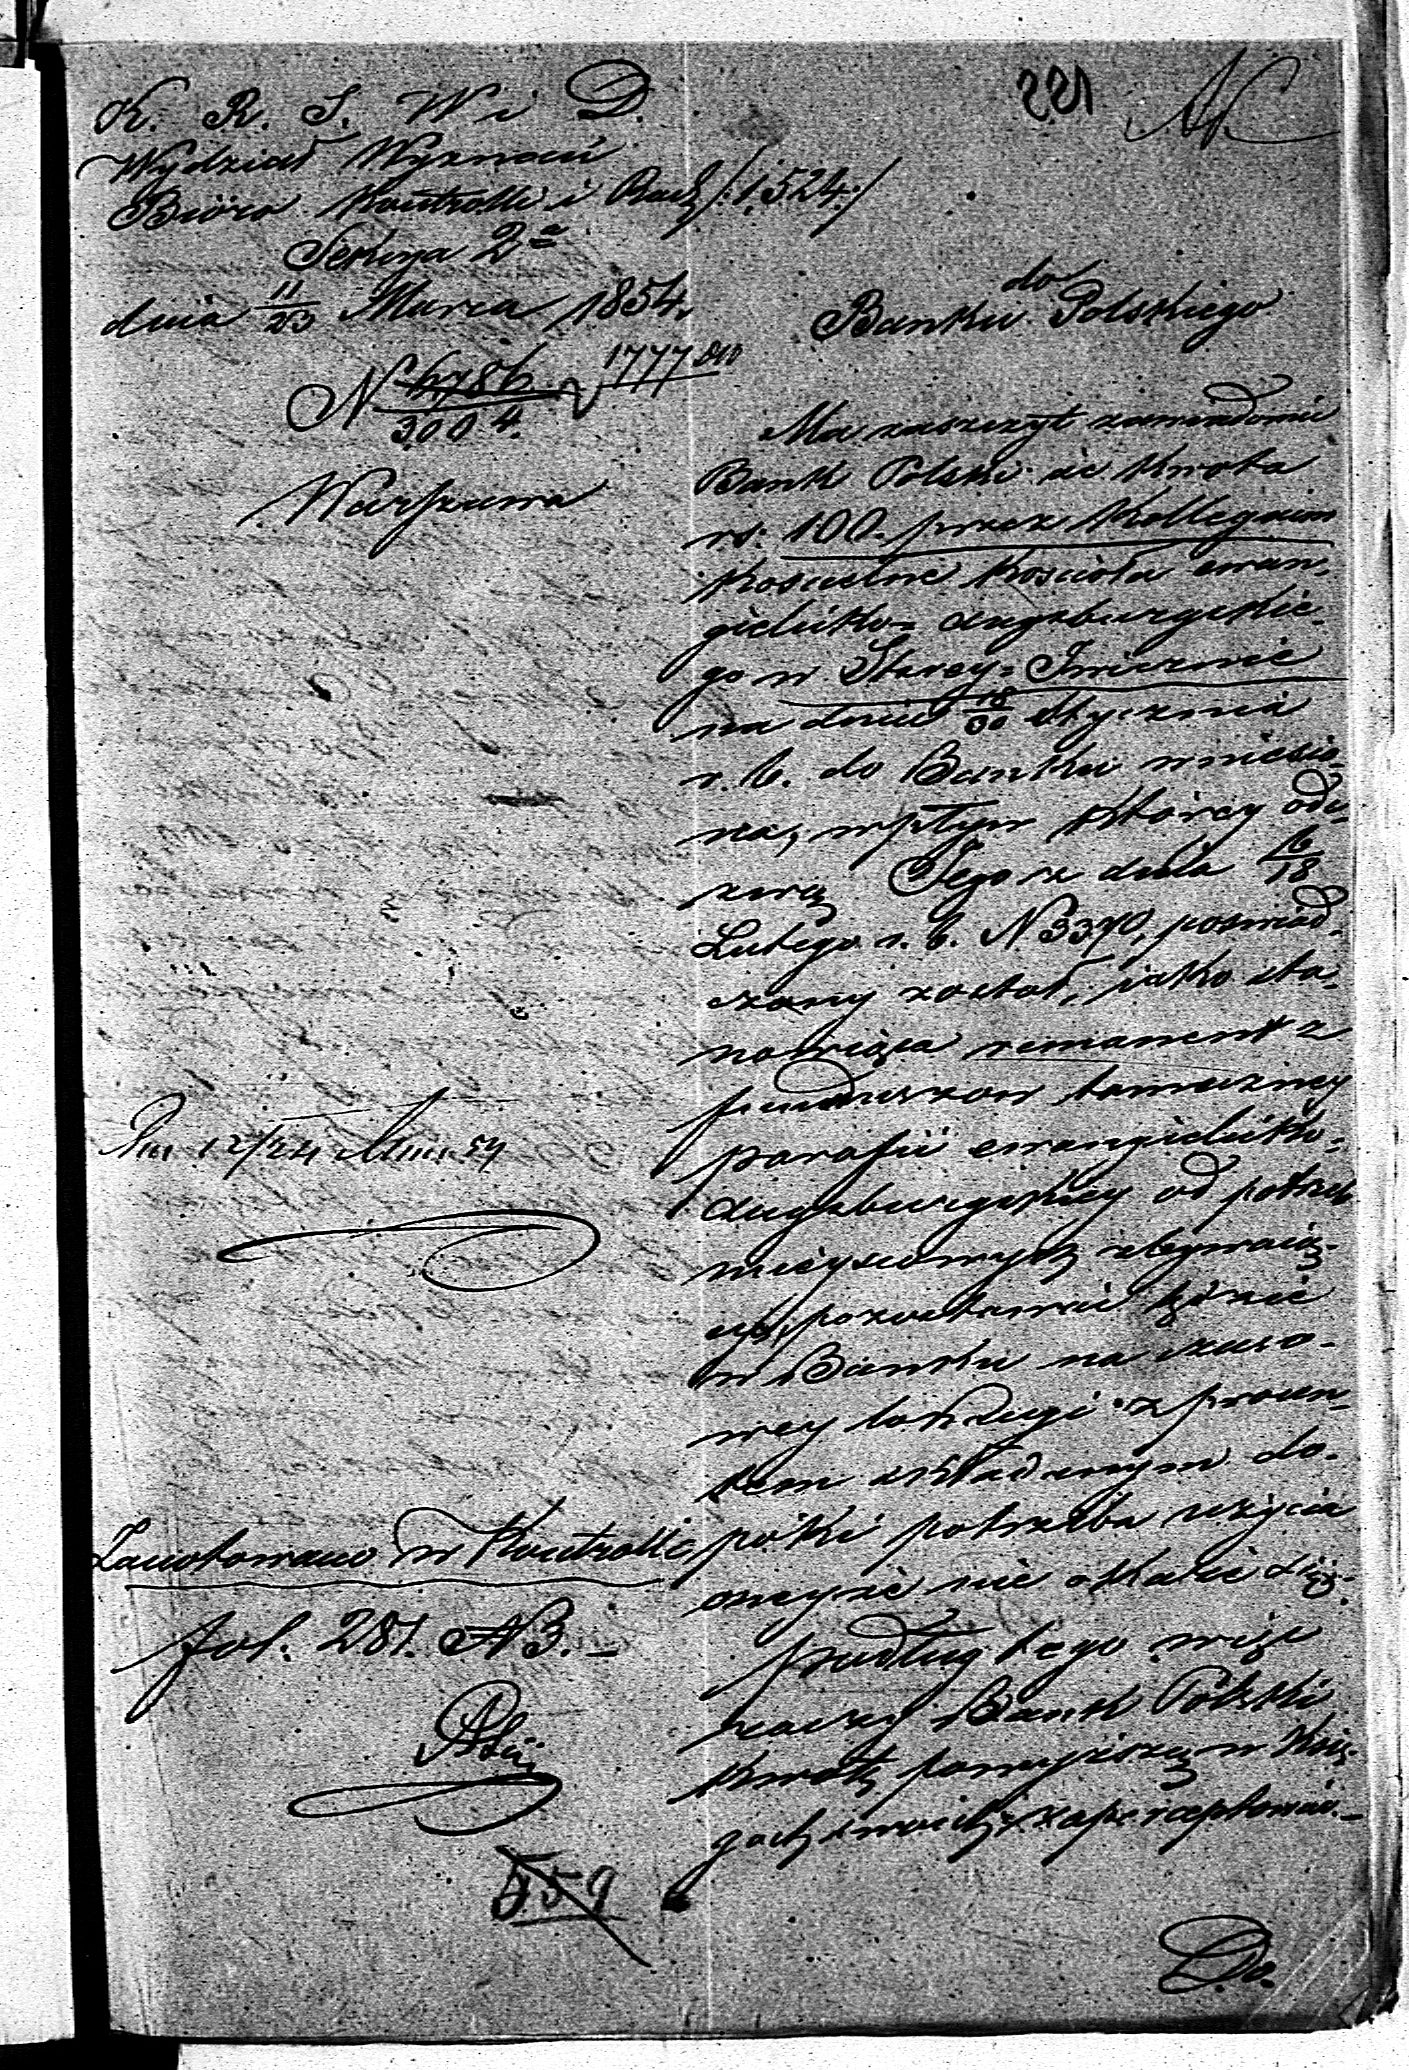 K. R. S. W i D.
Wydział Wyznań
Bióro Kontrolli i Rach /:1524:/
Sekcya 2a
dnia 11/23 Marca 1854
N 6786/3004. 1777
Warszawa
221
do
Banku Polskiego
Ma zaszczyt zawiadomić
Bank Polski że kwota
rs: 100. przez Kollegium
Kościelne Kościoła ewan-
gielicko-augsburgskie-
go w Starey-Iwicznie
na dniu 18/30 Stycznia
r. b. do Banku wniesio-
na, wpływ którey ode-
zwą Tegoż z dnia 6/18
Lutego r. b. N 3370, poświad-
czony został, jako sta-
nowiąca remanent z
funduszów tamecznej
parafii ewangielicko-
augsburgskiey od potrzeb
mieyscowych zbywaią-
cy, pozostawać będzie
w Banku na czaso-
wey lokacyi z procen-
tem składanym do-
póki potrzeba użycia
oneyże nie okaże się.
Podług tego więc
raczy Bank Polski
kwotę powyższą w Księ-
gach swoich zaperceptować.
Dn 12/24 Mar. 54
Zanotowano w Kontrolli
fol. 281. NB.
559
Do.